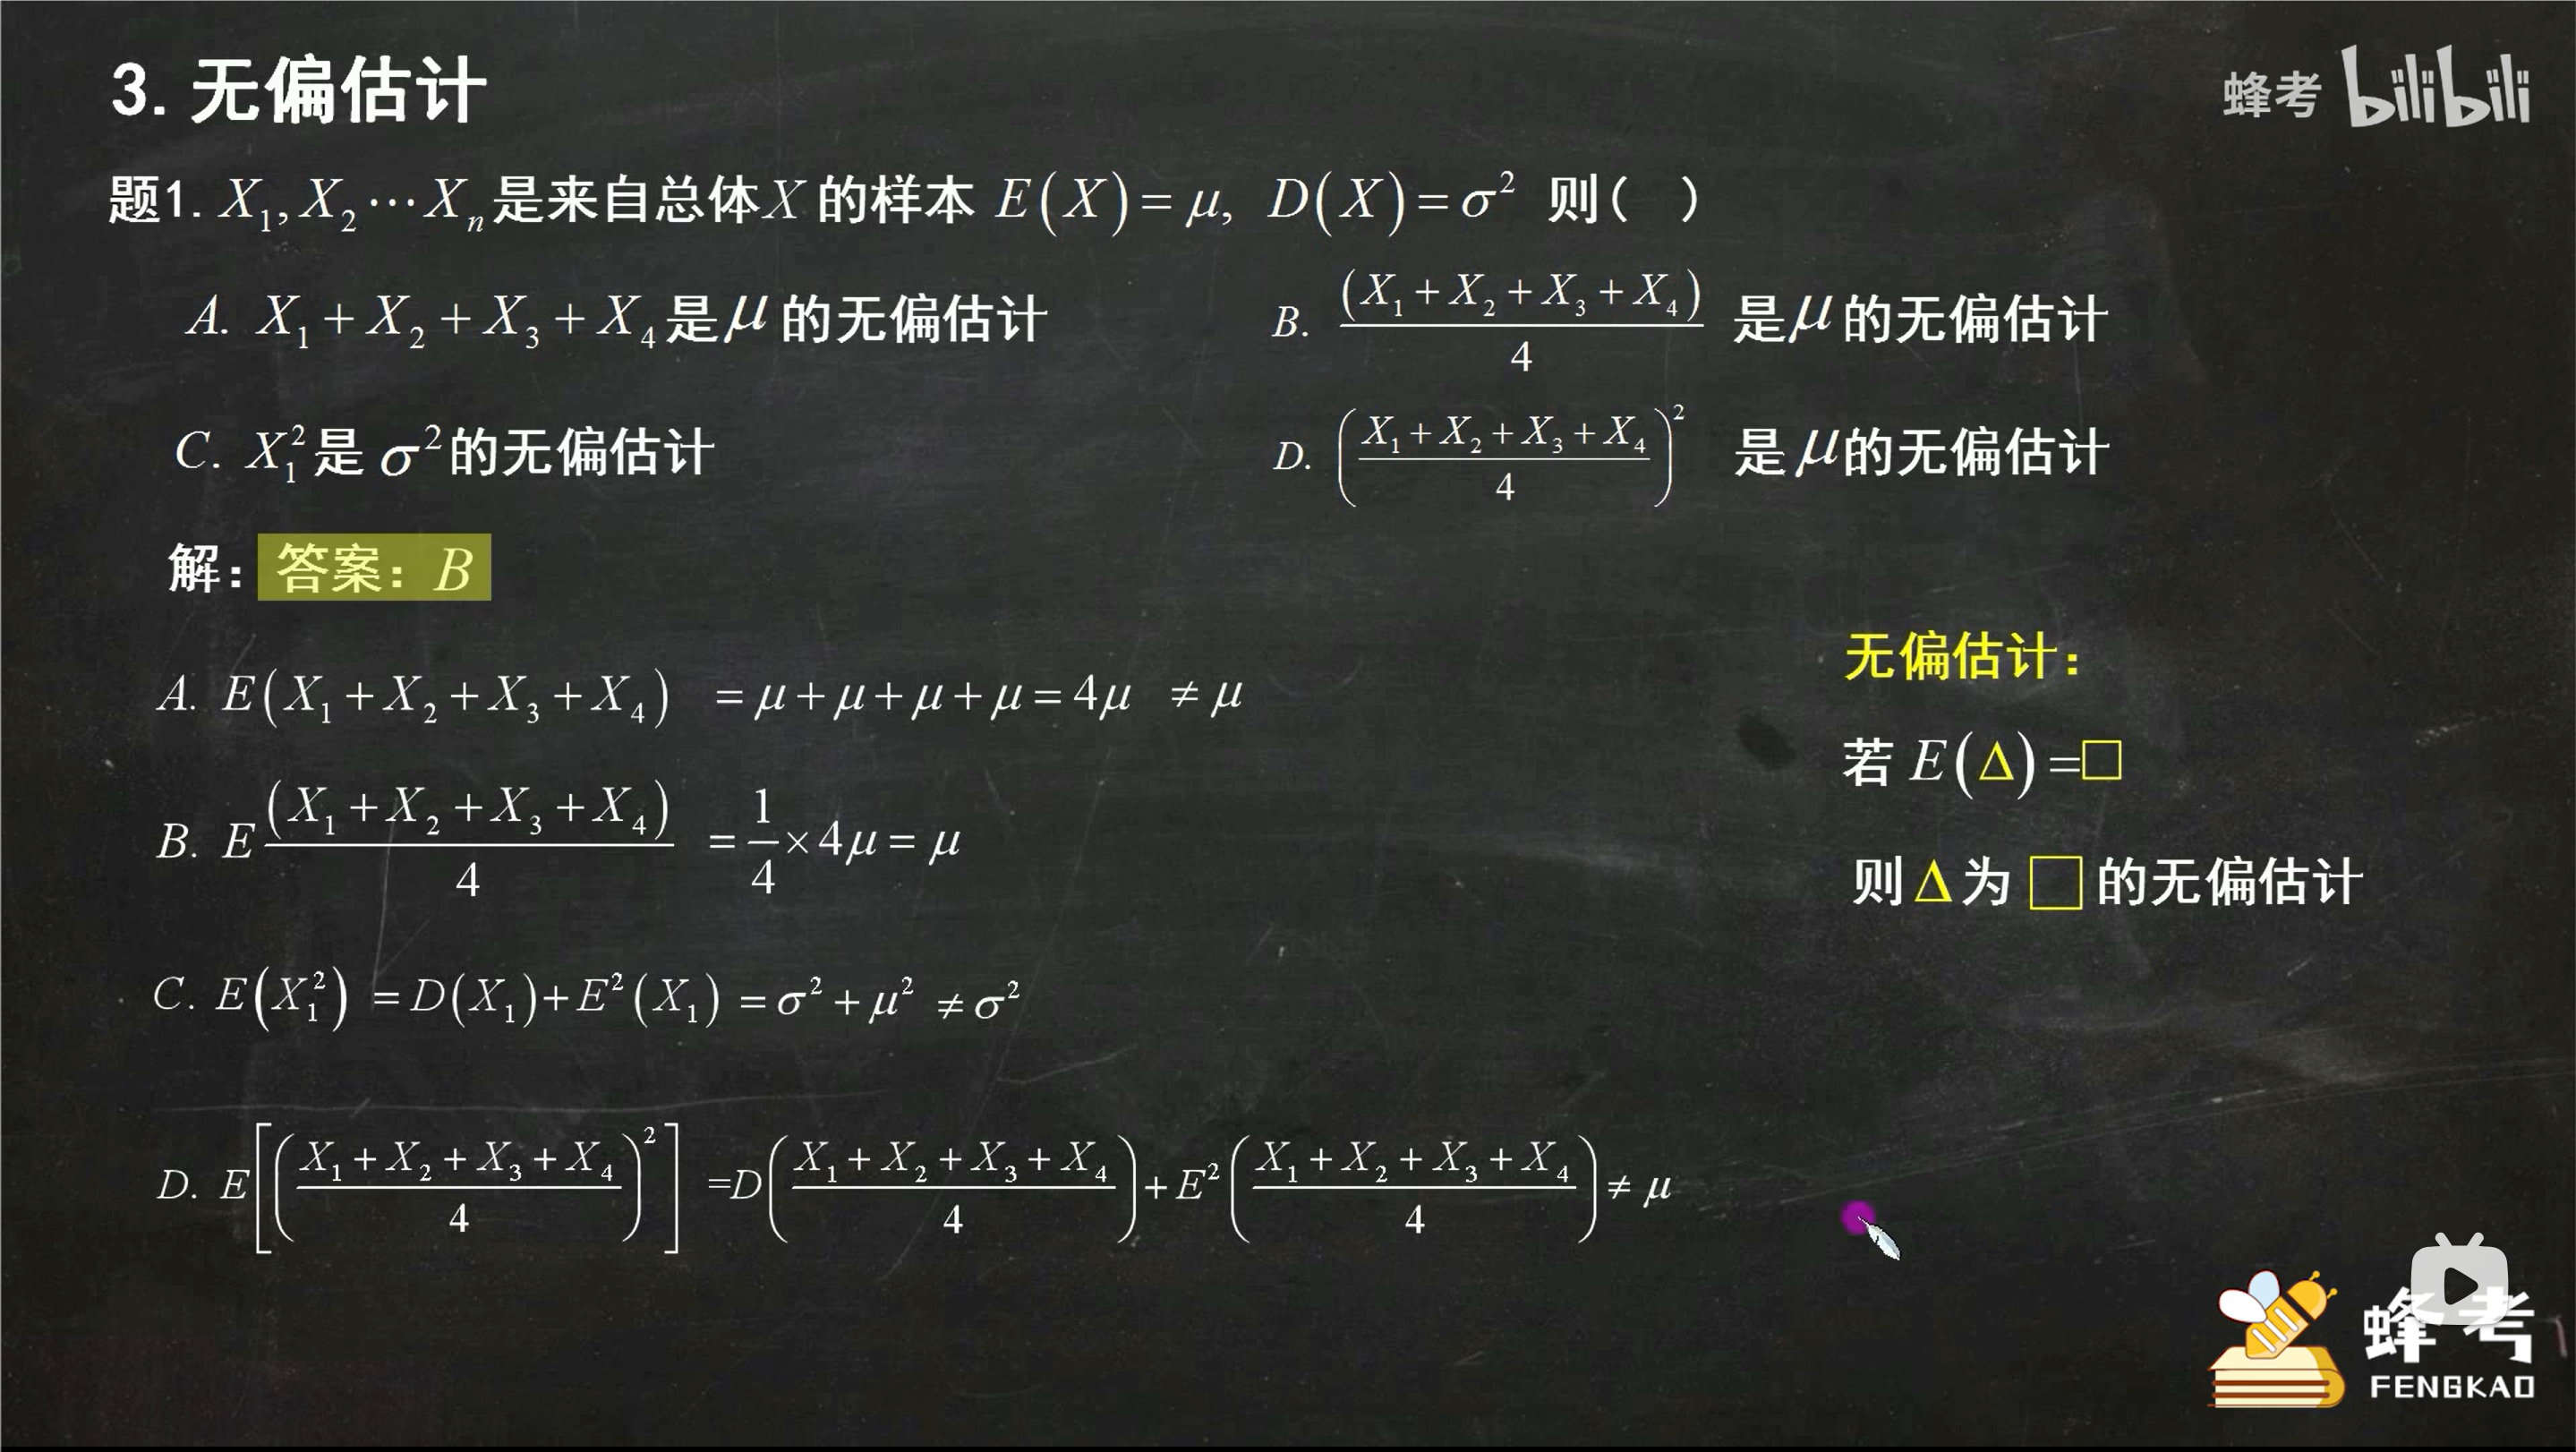 3.无偏估计
蜂考 bilibili
题1. X₁, X₂ ⋯ Xₙ 是来自总体 X 的样本 E(X) = μ, D(X) = σ² 则( )
A. X₁ + X₂ + X₃ + X₄ 是 μ 的无偏估计
B. (X₁ + X₂ + X₃ + X₄)/4 是 μ 的无偏估计
C. X₁² 是 σ² 的无偏估计
D. ((X₁ + X₂ + X₃ + X₄)/4)² 是 μ 的无偏估计
解: 答案: B
A. E(X₁ + X₂ + X₃ + X₄) = μ + μ + μ + μ = 4μ ≠ μ
B. E (X₁ + X₂ + X₃ + X₄)/4 = 1/4 × 4μ = μ
C. E(X₁²) = D(X₁) + E²(X₁) = σ² + μ² ≠ σ²
D. E[((X₁ + X₂ + X₃ + X₄)/4)²] = D((X₁ + X₂ + X₃ + X₄)/4) + E²((X₁ + X₂ + X₃ + X₄)/4) ≠ μ
无偏估计:
若 E(Δ) = □
则 Δ 为 □ 的无偏估计
蜂考
FENGKAO